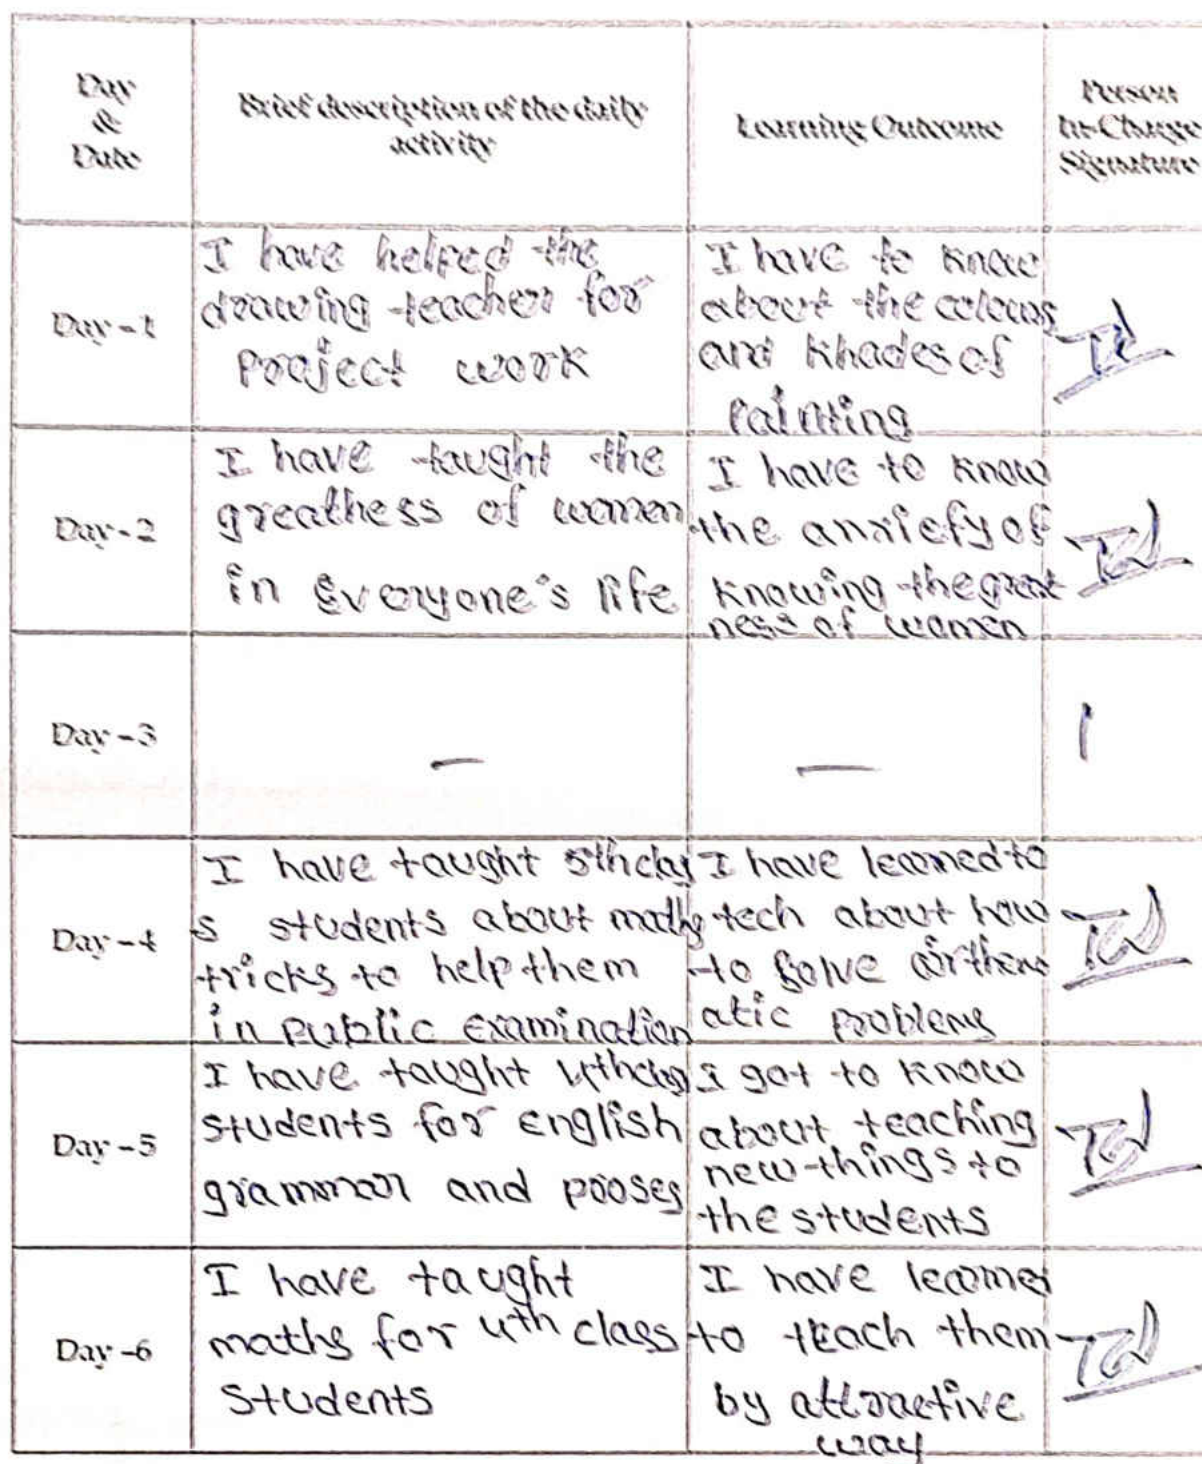 Day
&
Date
Brief description of the daily
activity
Learning Outcome
Person
In-Charge
Signature
Day - 1
I have helped the
drawing teacher for
project work
I have to know
about the colours
and khades of
Painting
Day - 2
I have taught the
greatness of women
in everyone's life
I have to know
the anxiety of
knowing the great
ness of women
Day - 3
—
—
Day - 4
I have taught 5th clas
s students about maths
tricks to help them
in public examination
I have learned to
tech about how
to solve airthem
atic problems
Day - 5
I have taught 4th class
students for english
grammar and
I got to know
about teaching
new things to
the students
Day - 6
I have taught
maths for 4th class
students
I have learned
to teach them
by attractive
way